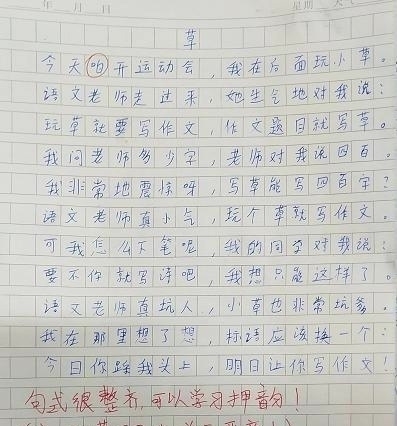 年 月 日 星期 天气
草
今天咱开运动会，我在后面玩小草。
语文老师走过来，她生气地对我说：
玩草就要写作文，作文题目就写草。
我问老师多少字，老师对我说四百。
我非常地震惊呀，写草能写四百字？
语文老师真小气，玩个草就写作文。
可我怎么下笔呢，我的同学对我说：
要不你就写诗吧，我想只能这样了。
语文老师真坑人，小草也非常坑爹。
我在那里想了想，标语应该换一个：
今日你踩我头上，明日让你写作文！
句式很整齐，可以学习押韵！